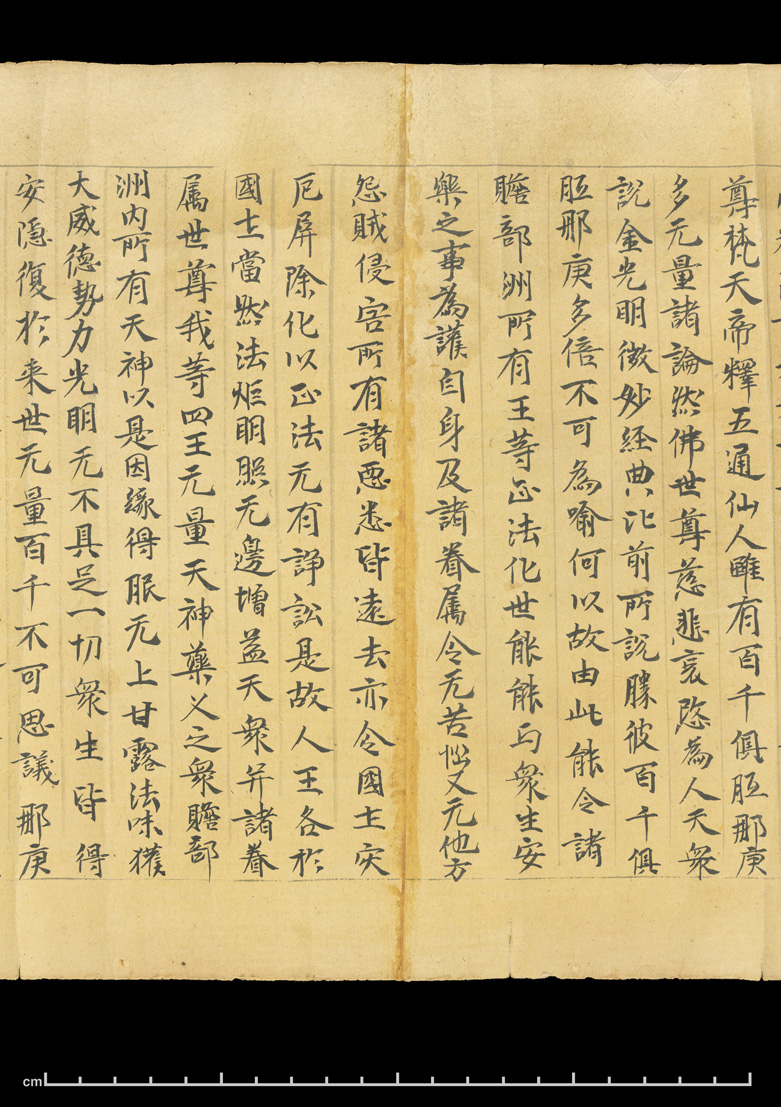 尊梵天帝釋五通仙人雖有百千俱胝那庾
多无量諸論然佛世尊慈悲哀愍為人天衆
說金光明微妙經典比前所說勝彼百千俱
胝那庾多倍不可為喻何以故由此能令諸
贍部洲所有王等正法化世能與衆生安
樂之事為護自身及諸眷属令无苦惱又无他方
怨賊侵害所有諸惡悉皆遠去亦令國土灾
厄屏除化以正法无有諍訟是故人王各於
國土當然法炬明照无邊增益天衆并諸眷
属世尊我等四王无量天神藥叉之衆贍部
洲内所有天神以是因緣得服无上甘露法味獲
大威德勢力光明无不具足一切衆生皆得
安隱復於来世无量百千不可思議那庾
cm